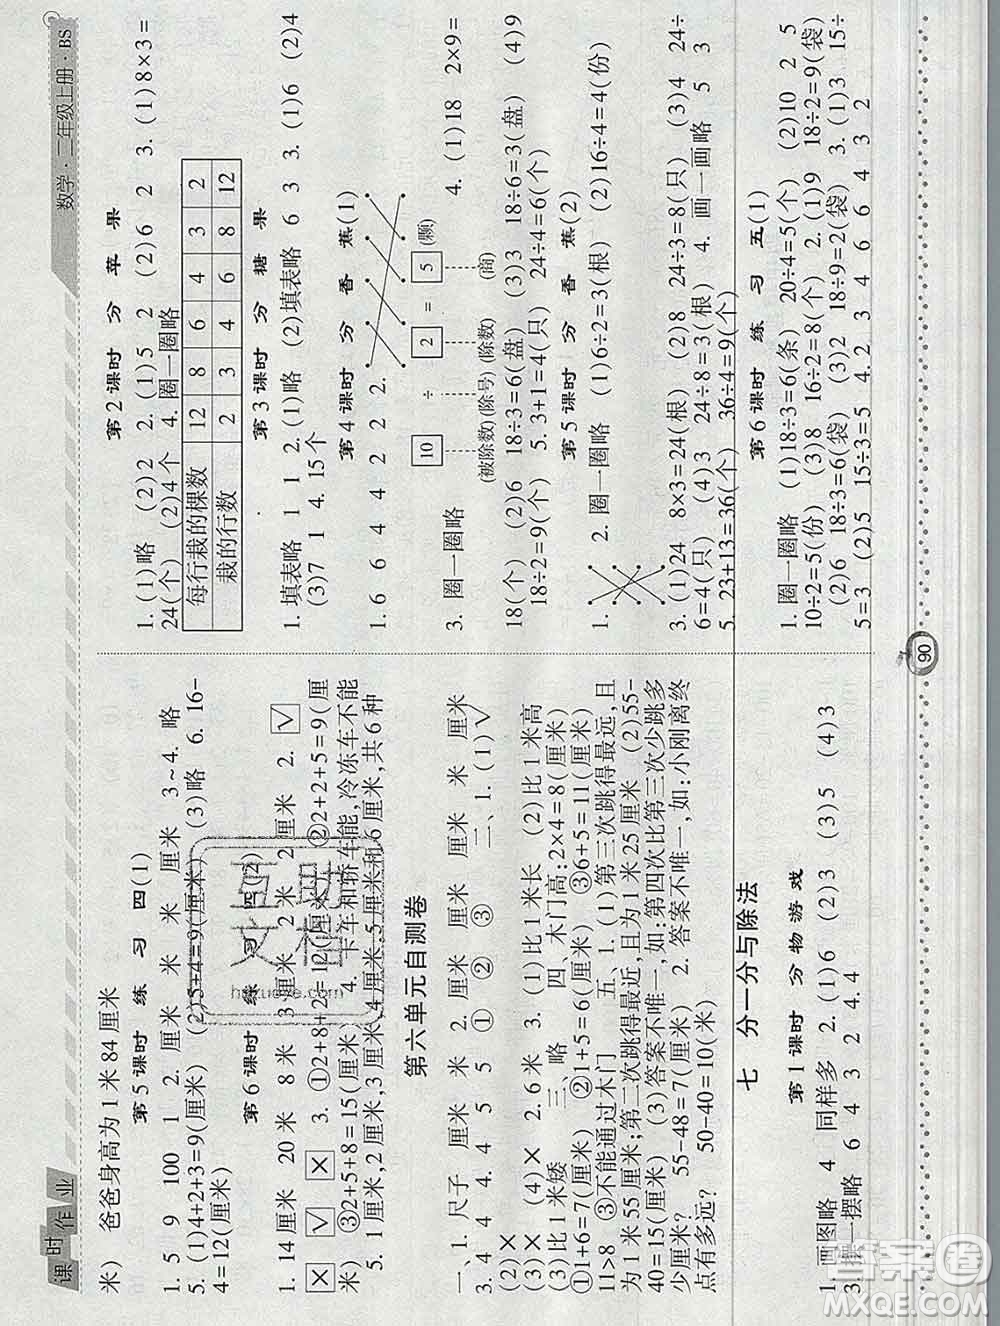 课时作业
数学·二年级上册·BS
米) 爸爸身高为1米84厘米
第5课时 练 习 四(1)
1. 5 9 100 1 2. 厘米 米 米 厘米 3~4. 略
5. (1)4+2+3=9(厘米) (2)5+4=9(厘米) (3)略 6. 16-
4=12(厘米)
第6课时 练 习 四(2)
1. 14厘米 20米 8米 3厘米 2米 2厘米 2. √
× √ × 3. ①2+8+2=12(厘米) ②2+2+5=9(厘
米) ③2+5+8=15(厘米) 4. 卡车和轿车能,冷冻车不能
5. 1厘米,2厘米,3厘米,4厘米,5厘米和6厘米,共6种
第六单元自测卷
一、1. 尺子 厘米 米 2. 厘米 厘米 厘米 米 厘米
3. 4 4 4. 4 5 5 ① ② ③ 二、1. (1)√
(2)×
(3)× (4)× 2. 6米 3. (1)比1米长 (2)比1米高
(3)比1米矮 三、略 四、木门高:2×4=8(厘米)
①1+6=7(厘米) ②1+5=6(厘米) ③6+5=11(厘米)
11>8 ③不能通过木门 五、1. (1)第三次跳得最远,且
为1米55厘米;第二次跳得最近,且为1米25厘米 (2)55-
40=15(厘米) (3)答案不唯一,如:第四次比第三次少跳多
少厘米? 55-48=7(厘米) 2. 答案不唯一,如:小刚离终
点有多远? 50-40=10(米)
七 分一分与除法
第1课时 分 物 游 戏
1. 画图略 4 同样多 2. (1)6 (2)3 (3)5 (4)3
3. 摆一摆略 6 4 3 2 4. 4
第2课时 分 苹 果
1. (1)略 (2)2 2. (1)5 2 (2)6 2 3. (1)8×3=
24(个) (2)4个 4. 圈一圈略
每行栽的棵数 12 8 6 4 3 2
栽的行数 2 3 4 6 8 12
第3课时 分 糖 果
1. 填表略 1 1 2. (1)略 (2)填表略 6 3 3. (1)6 (2)4
(3)7 1 4. 15个
第4课时 分 香 蕉(1)
1. 6 6 4 4 2 2 2.
3. 圈一圈略
10 ÷ 2 = 5 (颗)
(被除数)(除号)(除数) (商)
4. (1)18 2×9=
18(个) (2)6 18÷3=6(盘) (3)3 18÷6=3(盘) (4)9
18÷2=9(个) 5. 3+1=4(只) 24÷4=6(个)
第5课时 分 香 蕉(2)
1. 2. 圈一圈略 (1)6÷2=3(根) (2)16÷4=4(份)
3. (1)24 8×3=24(根) (2)8 24÷3=8(只) (3)4 24÷
6=4(只) (4)3 24÷8=3(根) 4. 画一画略 5 3
5. 23+13=36(个) 36÷4=9(个)
第6课时 练 习 五(1)
1. 圈一圈略 (1)18÷3=6(条) 20÷4=5(个) (2)10 2 5
10÷2=5(份) (3)8 16÷2=8(个) 2. (1)9 18÷2=9(袋)
(2)6 18÷3=6(袋) (3)2 18÷9=2(袋) 3. (1)3 15÷
5=3 (2)5 15÷3=5 4. 2 3 4 6 6 4 3 2
90
答案圈
MXQE.COM